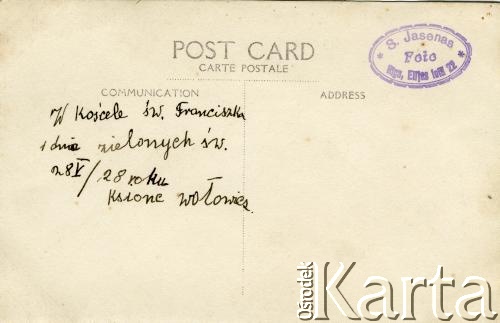 POST CARD
CARTE POSTALE
S. Jasenas
Foto
Riga, Elijas ielā 22
COMMUNICATION
ADDRESS
W Kościele św. Franciszka
i dnia zielonych św.
28 V/28 roku
Ksione Wołowicz.
Ośrodek Karta